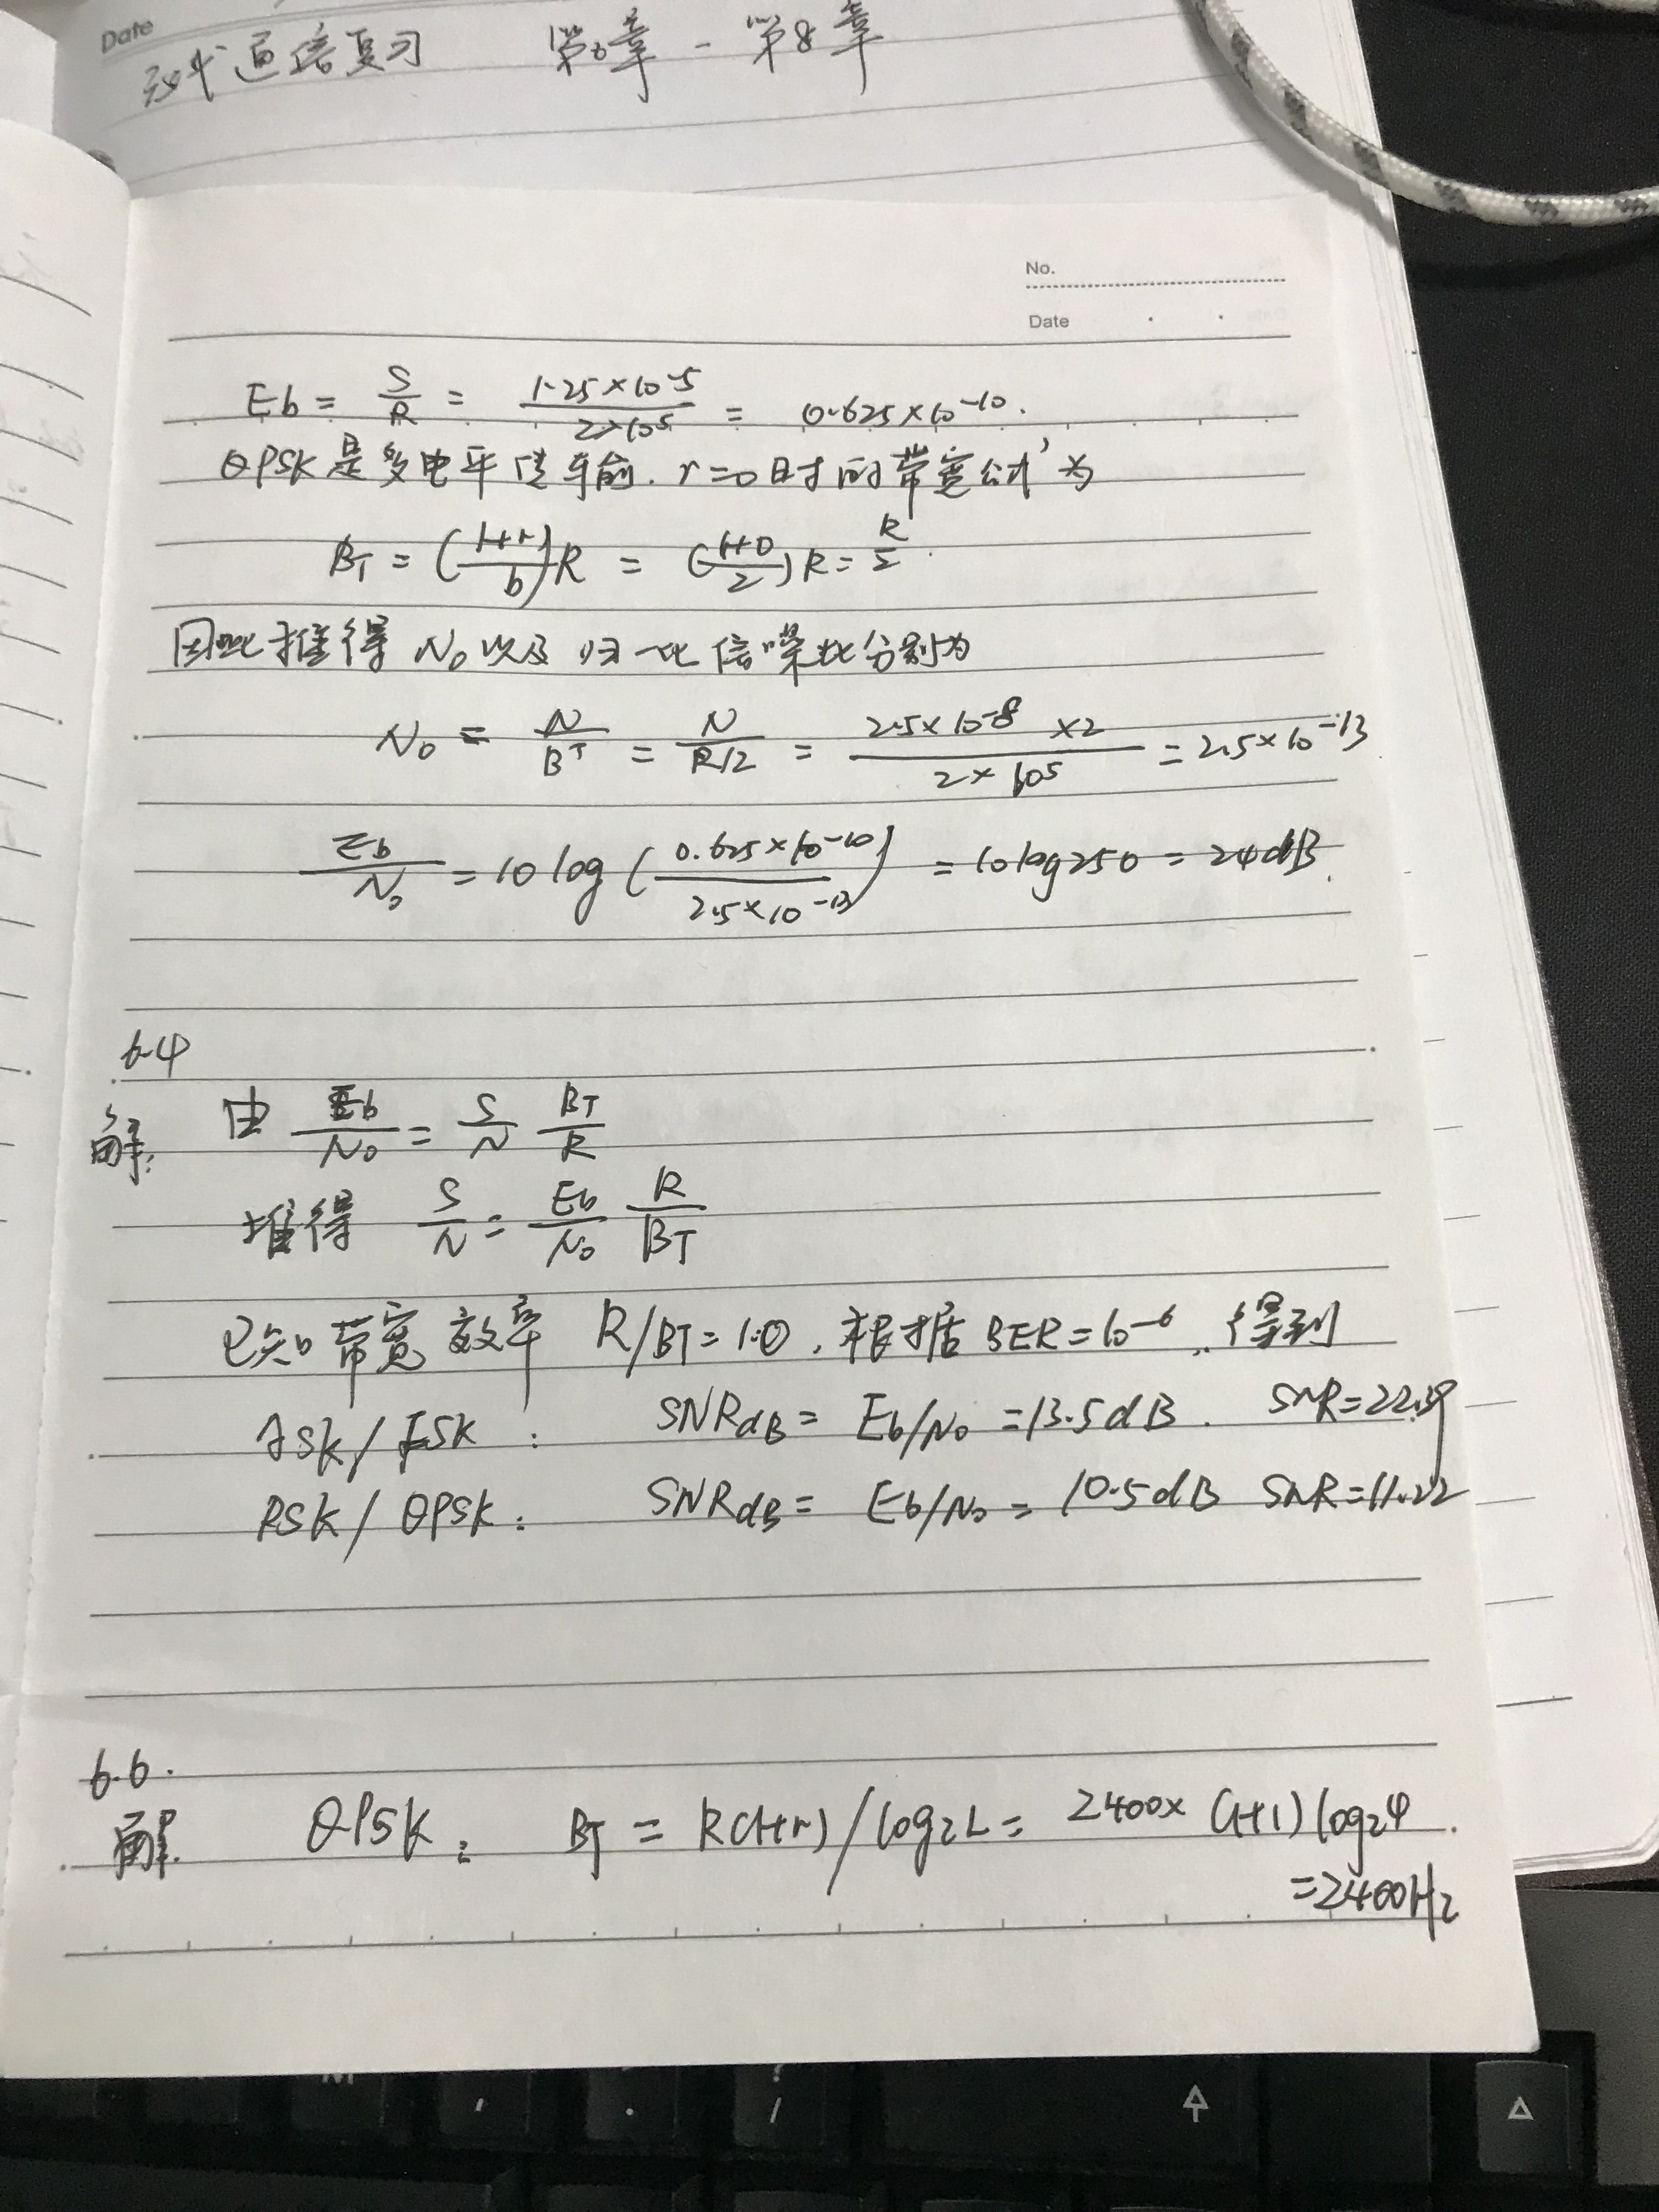 Date
通信复习 第6章 - 第8章
No.
Date
Eb = S/R = 1.25×10^-5 / 2×10^5 = 0.625×10^-10.
QPSK是多电平 r=0时的带宽公式为
BT = ((1+r)/b)R = ((1+0)/2)R = R/2.
因此推得 N0 以及归一化信噪比分别为
N0 = N/BT = N/(R/2) = 2.5×10^-8 ×2 / 2×10^5 = 2.5×10^-13
Eb/N0 = 10 log (0.625×10^-10 / 2.5×10^-13) = 10 log 250 = 24dB.
6.4
解: 由 Eb/N0 = S/N BT/R
推得 S/N = Eb/N0 R/BT
已知带宽效率 R/BT=1.0, 根据 BER=10^-6, 得到
ASK/FSK: SNRdB = Eb/N0 = 13.5dB. SNR=22.39
PSK/QPSK: SNRdB = Eb/N0 = 10.5dB SNR=11.22
6.6.
解 QPSK: BT = R(1+r)/log2L = 2400×(1+1)log24.
=2400Hz